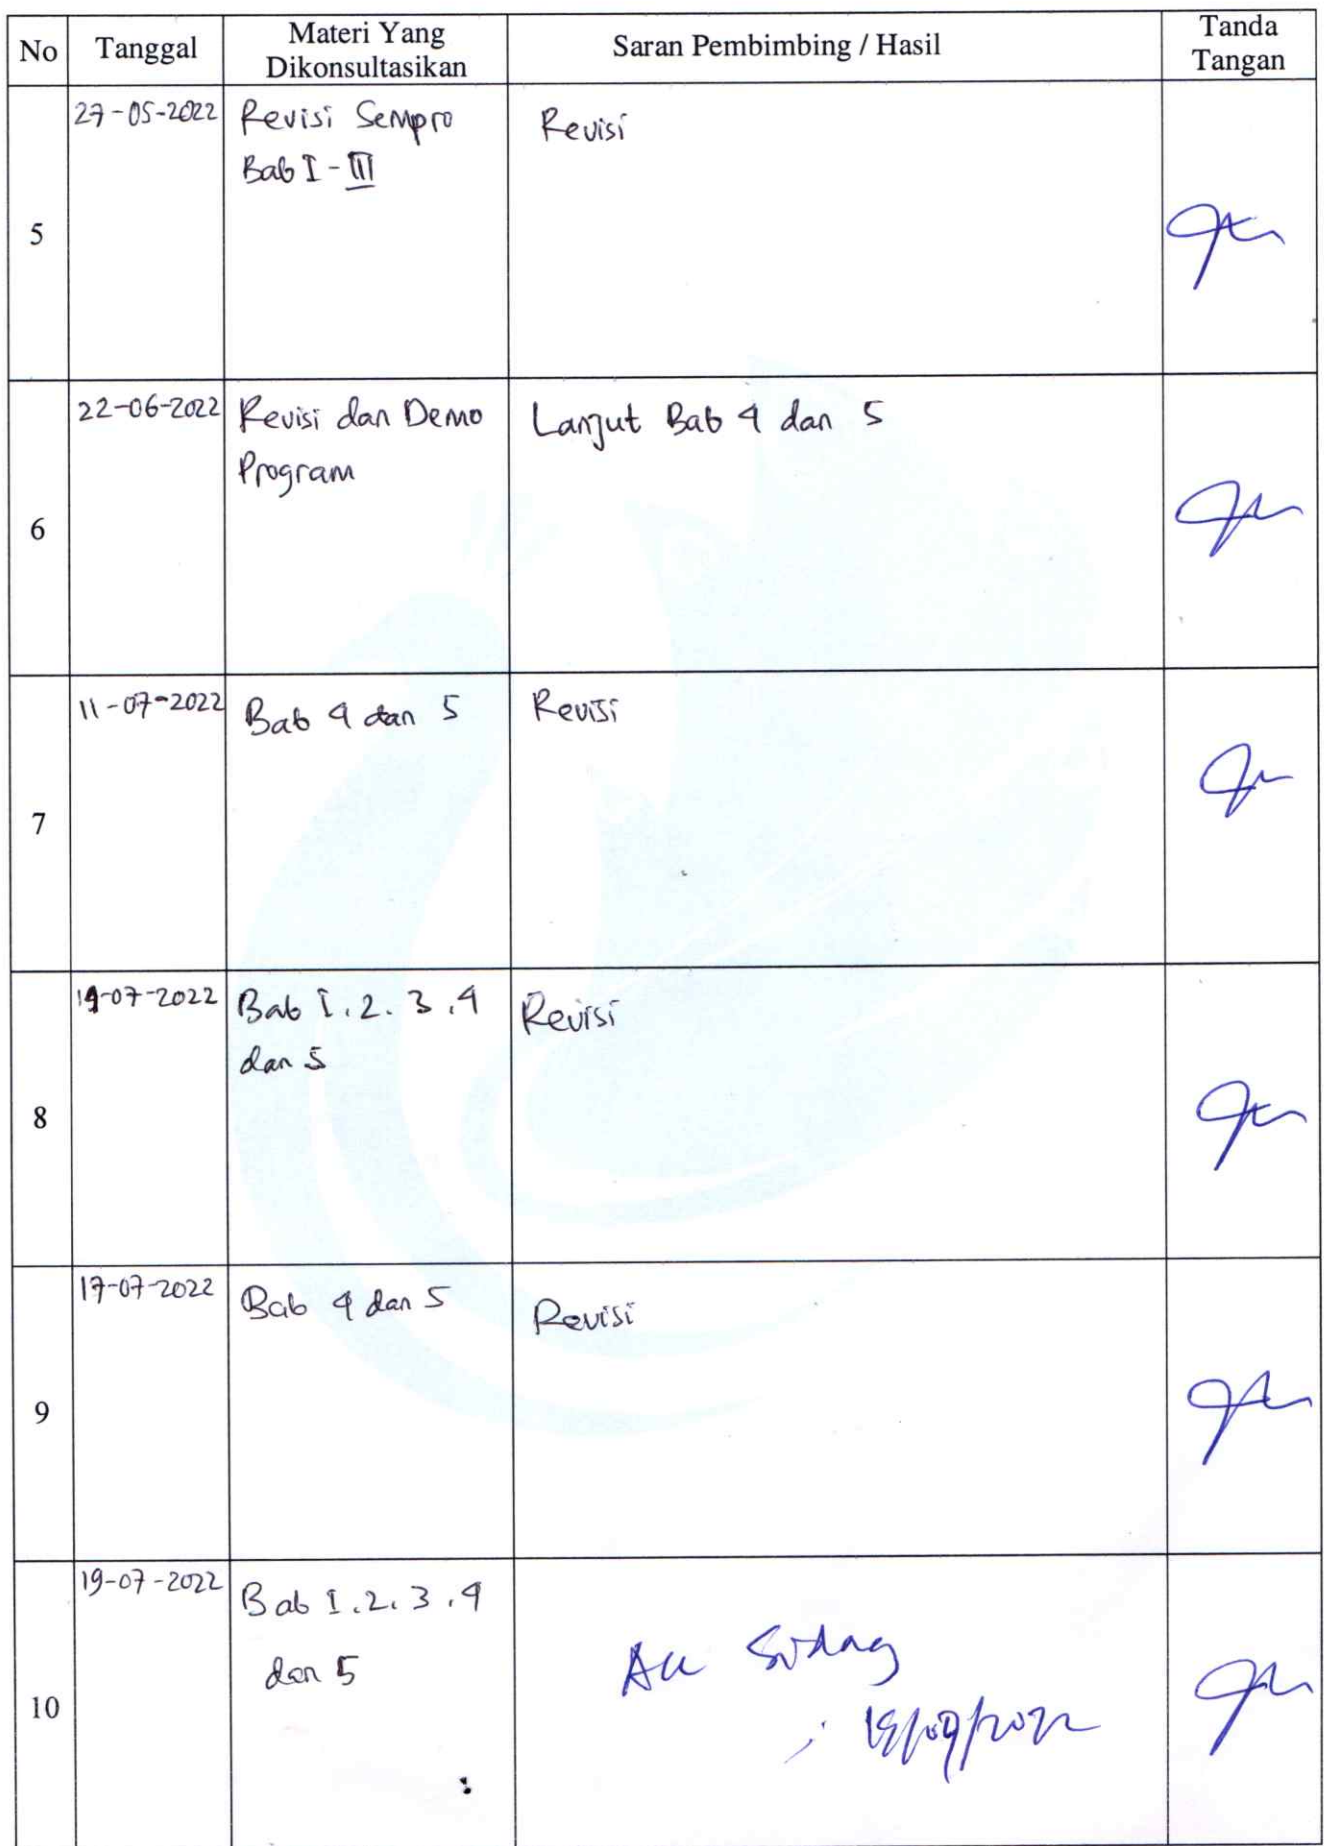 No Tanggal Materi Yang Dikonsultasikan Saran Pembimbing / Hasil Tanda Tangan
5 27-05-2022 Revisi Sempro Revisi
Bab I - III
6 22-06-2022 Revisi dan Demo Lanjut Bab 4 dan 5
Program
7 11-07-2022 Bab 4 dan 5 Revisi
8 14-07-2022 Bab I. 2. 3. 4 Revisi
dan 5
9 17-07-2022 Bab 4 dan 5 Revisi
10 19-07-2022 Bab I. 2. 3. 4
dan 5
Acc Sidang